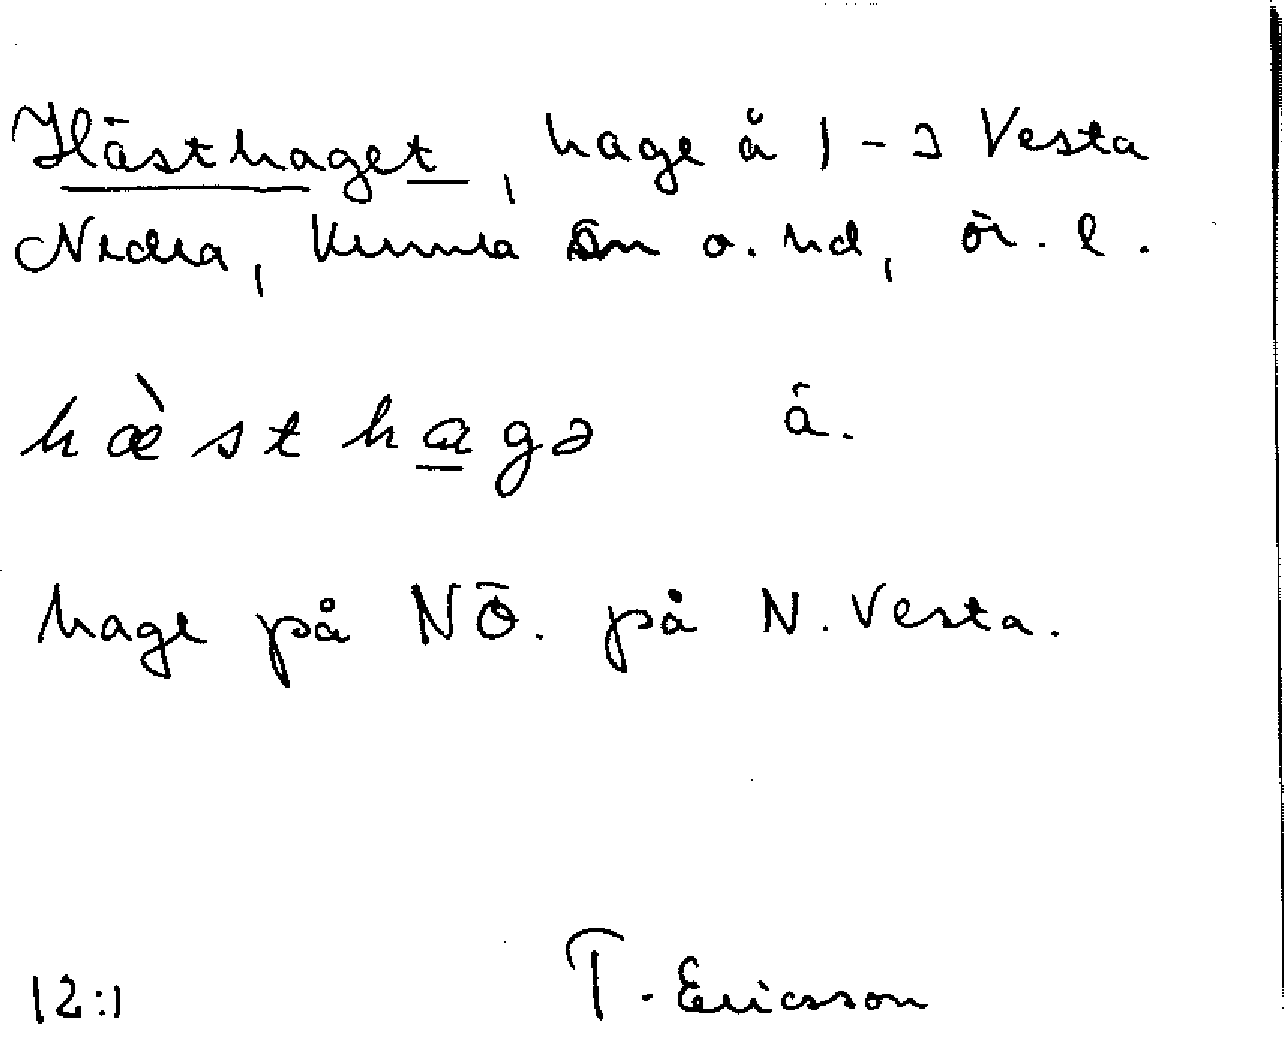 Hästhaget, hage å 1-2 Vesta
Nedra, Kumla sn o. hd, ör. l.
hæ̀sthagə ä.
hage på NÖ. på N. Vesta.
12:1 T. Ericsson